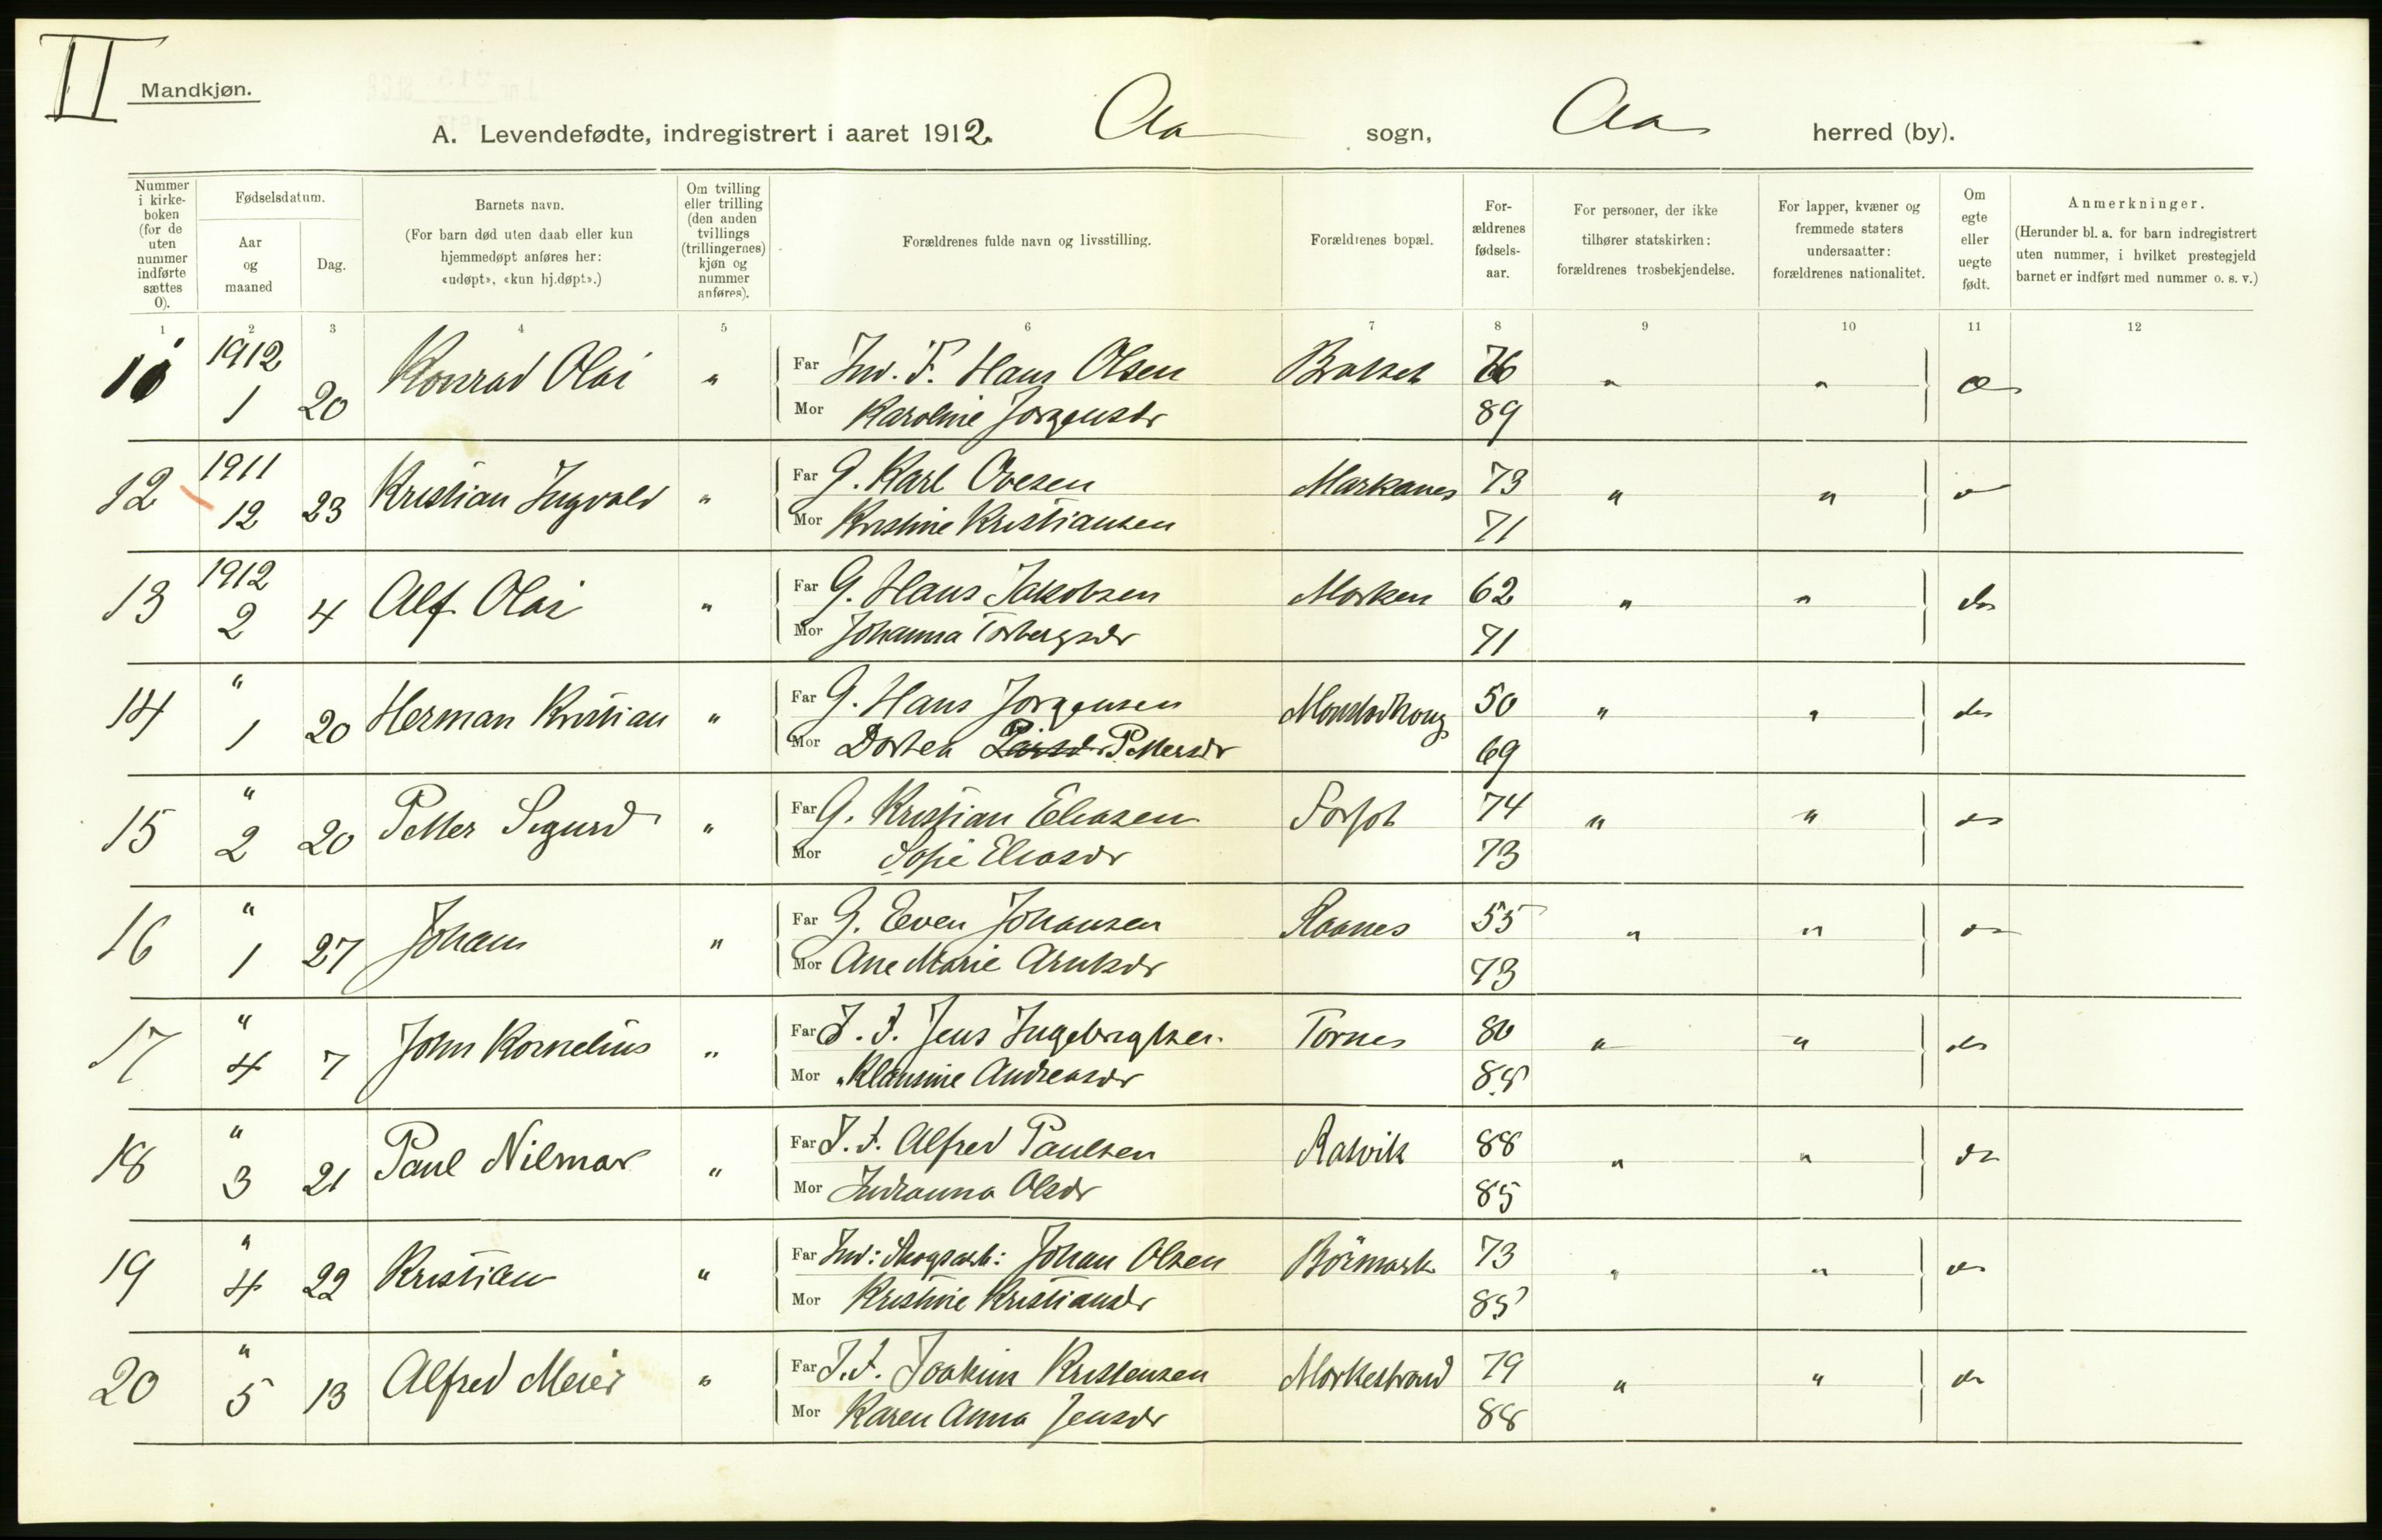 II
Mandkjøn.
A. Levendefødte, indregistrert i aaret 1912. Aa sogn, Aa herred (by).
Nummer i kirke-boken (for de uten nummer indførte sættes 0).
Fødselsdatum.
Aar og maaned
Dag.
Barnets navn.
(For barn død uten daab eller kun hjemmedøpt anføres her: «udøpt», «kun hj.døpt».)
Om tvilling eller trilling (den anden tvillings (trillingernes) kjøn og nummer anføres).
Forældrenes fulde navn og livsstilling.
Forældrenes bopæl.
For-ældrenes fødsels-aar.
For personer, der ikke tilhører statskirken: forældrenes trosbekjendelse.
For lapper, kvæner og fremmede staters undersaatter: forældrenes nationalitet.
Om egte eller uegte født.
Anmerkninger.
(Herunder bl. a. for barn indregistrert uten nummer, i hvilket prestegjeld barnet er indført med nummer o. s. v.)
1 2 3 4 5 6 7 8 9 10 11 12
1912 1 20 Konrad Olai " Far Inv. F. Hans Olsen 76 " "
Mor Karoline Jørgensdr 89
12 1911 12 23 Kristian Ingvald " Far G. Karl Ovesen Markanes 73 " "
Mor Kristine Kristiansen 71
13 1912 2 4 Alf Olai " Far G. Hans Jakobsen Morken 62 " " do
Mor Johanna Torbergsdr 71
14 " 1 20 Herman Kristian " Far G. Hans Jørgensen 50 " " do
Mor Dortea Pettersdr 69
15 " 2 20 Petter Sigurd " Far G. Kristian Eliasen Forsot 74 " " do
Mor Sofie Eliasdr 73
16 " 1 27 Johan " Far G. Even Johansen 55 " " do
Mor Ane Marie Arntsdr 73
17 " 4 7 John Kornelius " Far I. F. Jens Ingebrigtsen Tornes 80 " " do
Mor Klausine Andreasdr 88
18 " 3 21 Paul Nilmar " Far I. F. Alfred Paulsen Ratvik 88 " " do
Mor Indianna Olsdr 85
19 " 4 22 Kristian " Far Ind: Skogsarb: Johan Olsen Börmark 73 " " do
Mor Kristine Kristiansdr 85
20 " 5 13 Alfred Meier " Far I. F. Joakim Kristensen Morkestrand 79 " " do
Mor Karen Anna Jensdr 88